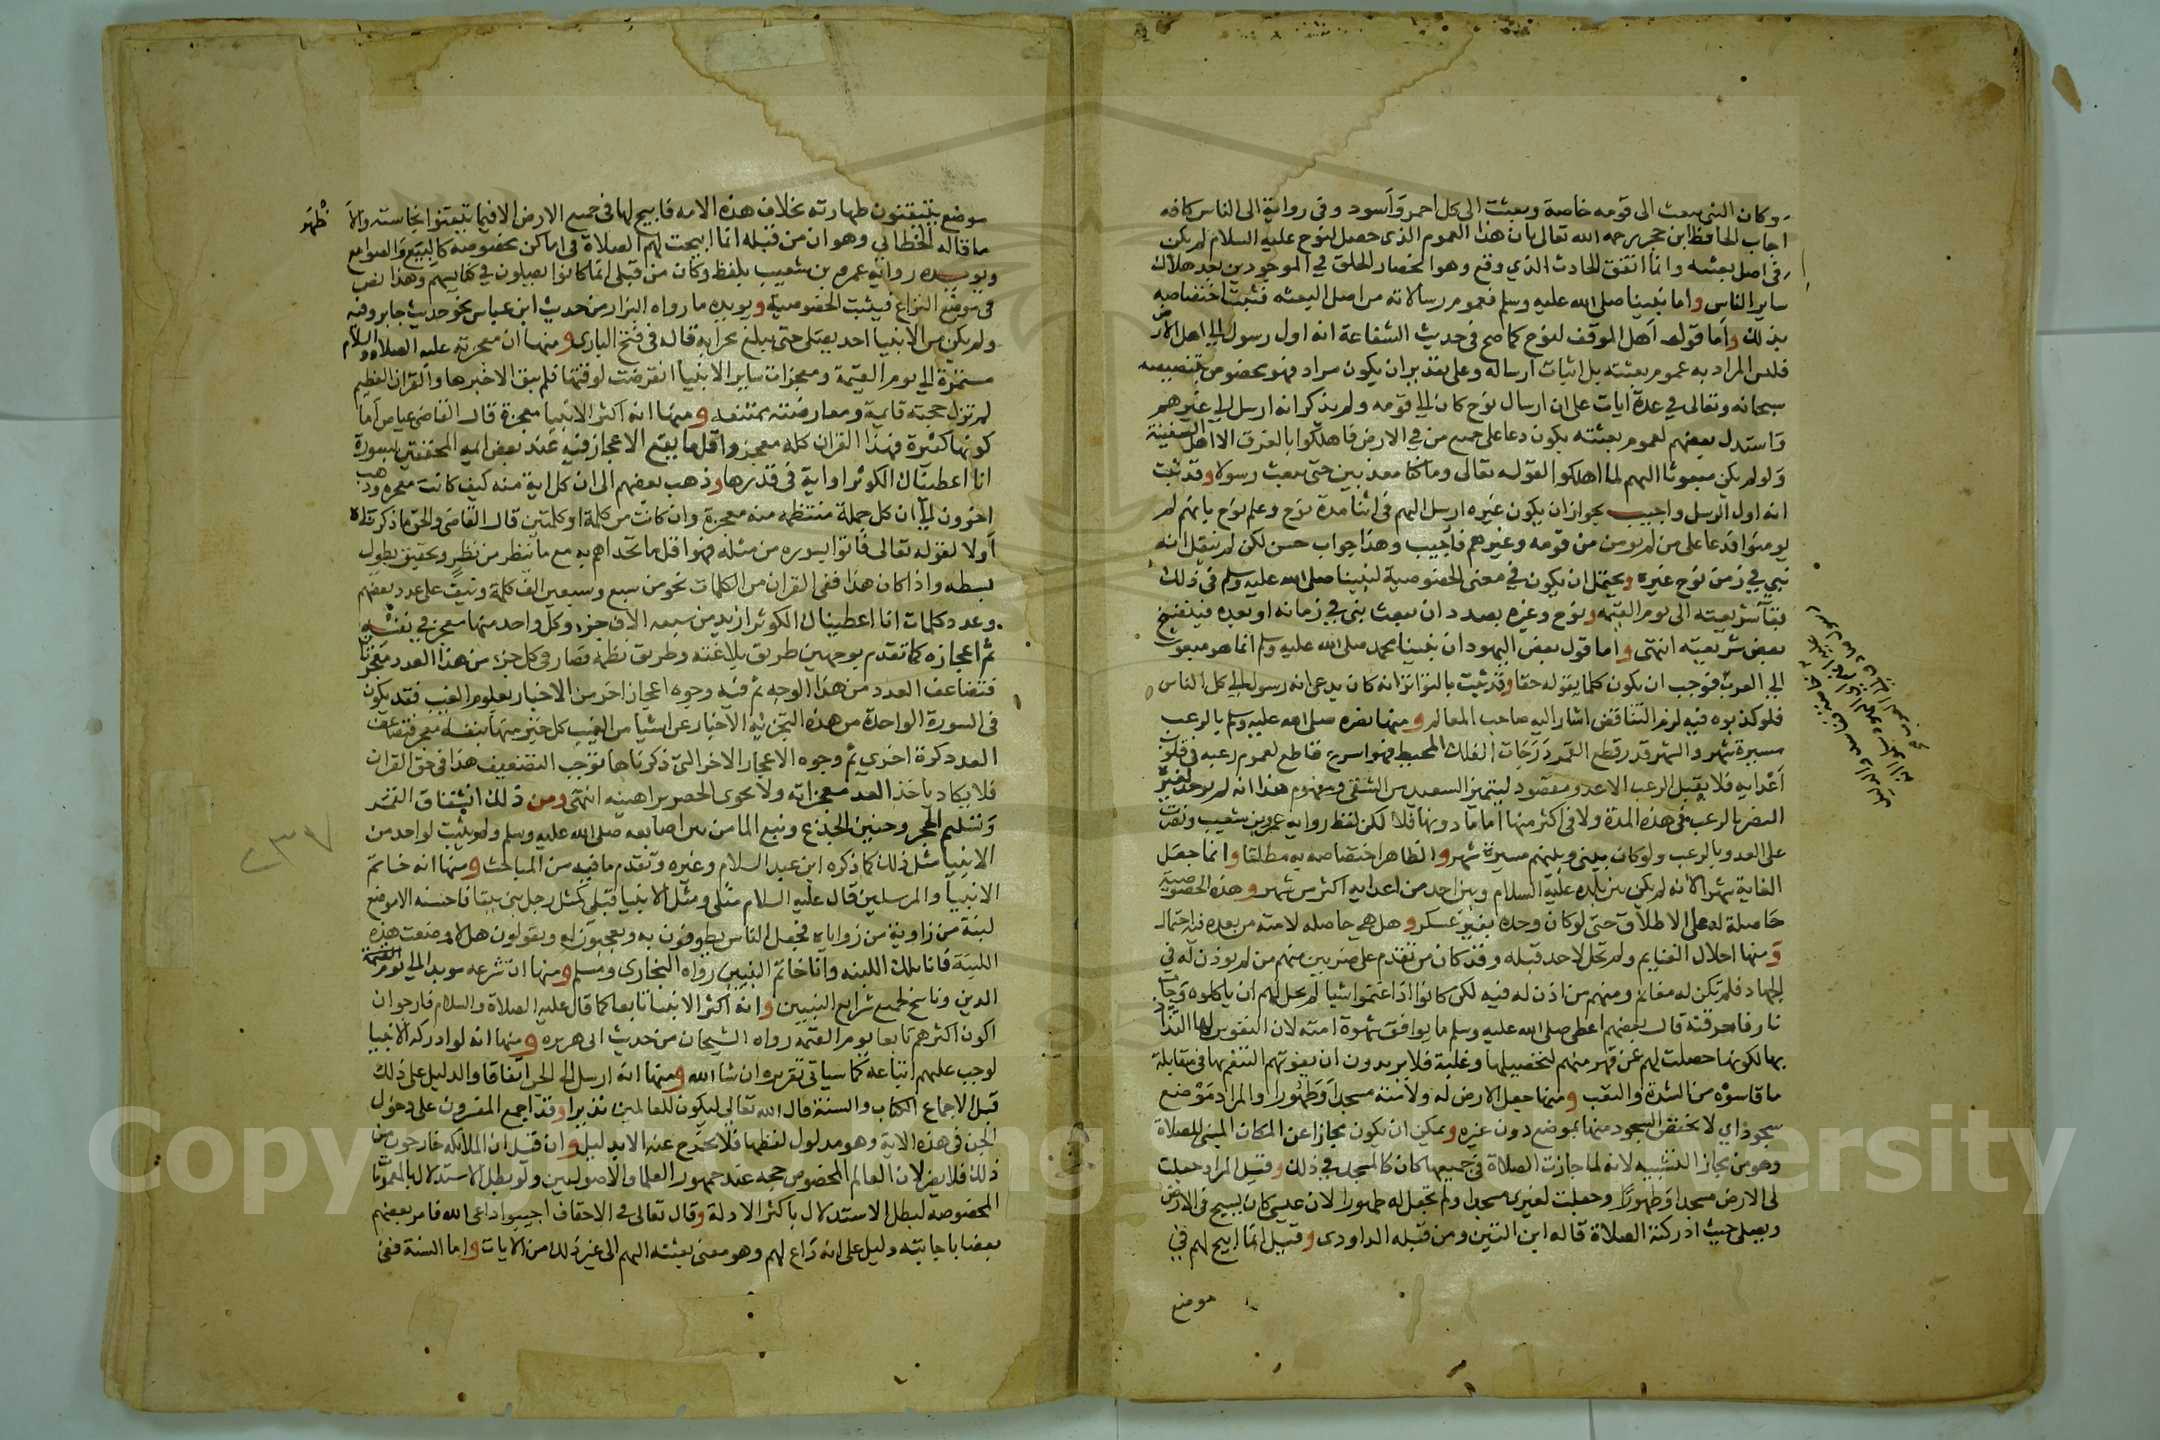 وكان النبى يبعث الى قومه خاصة وبعثت الى كل احمر وأسود وفى رواية الى الناس كافه
اجاب الحافظ ابن حجر رحمه الله تعالى بان هذا العموم الذى حصل لنوح عليه السلام لم يكن
فى اصل بعثته وانما اتفق الحادث الذي وقع وهو انحصار الخلق في الموجودين بعد هلاك
ساير الناس واما نبينا صلى الله عليه وسلم فعموم رسالاته من اصل البعثه فثبت اختصاصه
بذلك واما قول اهل الموقف لنوح كما صح فى حديث الشفاعة انه اول رسول الى اهل الارض
فليس المراد به عموم بعثته بل اثبات ارساله وعلى تقدير ان يكون مراد فهو مخصوص بتنصيصه
سبحانه وتعالى في عدة ايات على ان ارسال نوح كان الى قومه ولم يذكر انه ارسل الى غيرهم
واستدل بعضهم لعموم بعثته بكون دعا على جميع من في الارض فاهلكوا بالغرق الا اهل السفينة
ولو لم يكن مبعوثا اليهم لما اهلكوا لقوله تعالى وما كنا معذبين حتى نبعث رسولا وقد ثبت
انه اول الرسل واجيب بجواز ان يكون غيره ارسل اليهم فى اثنا مدة نوح وعلم نوح بانهم لم
يومنوا فدعا على من لم يومن من قومه وغيرهم فاجيب وهذا جواب حسن لكن لم ينقل انه
نبي في زمن نوح غيره ويحتمل ان يكون في معنى الخصوصية لنبينا صلى الله عليه وسلم فى ذلك
بقآ شريعته الى يوم القيمه ونوح وغيره بصدد ان يبعث نبى في زمانه او بعده فينسخ
بعض شريعته انتهى واما قول بعض اليهود ان نبينا محمد صلى الله عليه وسلم انما هو مبعوث
الى العرب فوجب ان يكون كلما يقوله حقا وقد ثبت بالتواتر انه كان يدعى انه رسول الى كل الناس
فلو كذبوه فيه لزم التناقض اشار اليه صاحب المعالم ومنها نصره صلى الله عليه وسلم بالرعب
مسيرة شهر والشهر قدر قطع القمر درجات الفلك المحيط فهو اسرع قاطع لعموم رعبه فى قلوب
أعدايه فلا يقبل الرعب الا عدو مقصود ليتميز السعيد من الشقى ومفهوم هذا انه لم يوجد لغيره
النصر بالرعب فى هذه المدة ولا فى اكثر منها اما ما دونها فلا لكن لفظ رواية عمرو بن شعيب ونصرت
على العدو بالرعب ولو كان بينى وبينهم مسيرة شهر والظاهر اختصاصه به مطلقا وانما جعل
الغاية شهرا لانه لم يكن بين بلده عليه السلام وبين احد من اعدايه اكثر من شهر وهذه الخصوصية
حاصلة له على الاطلاق حتى لو كان وحده بغير عسكر وهل هى حاصله لامته من بعده فيه احتمال
ومنها احلال الغنايم ولم تحل لاحد قبله وقد كان من تقدم على ضربين منهم من لم يوذن له في
الجهاد فلم تكن له مغانم ومنهم من اذن له فيه لكن كانوا اذا غنموا شيا لم يحل لهم ان ياكلوه وجات
نار فاحرقته قال بعضهم اعطى صلى الله عليه وسلم ما يوافق شهوة امته لان النفوس لها التذاذ
بها لكونها حصلت لهم عن قهر منهم لتحصيلها وغلبة فلا يريدون ان يفوتهم التنعم بها فى مقابلة
ما قاسوه من الشدة والتعب ومنها جعل الارض له ولامته مسجدا وطهورا والمراد موضع
سجود اي لا يختص السجود منها بموضع دون غيره ويمكن ان يكون مجازا عن المكان المبنى للصلاة
وهو من مجاز التشبيه لانه لما جازت الصلاة فى جميعها كان كالمسجد في ذلك وقيل المراد جعلت
لى الارض مسجدا وطهورا وجعلت لغيرى مسجدا ولم تجعل له طهورا لان عيسى كان يسيح فى الارض
ويصلى حيث ادركته الصلاة قاله ابن التين ومن قبله الداودى وقيل انما ابيح لهم في
موضع
موضع يتيقنون طهارته بخلاف هذه الامه فابيح لها فى جميع الارض الا فيما تيقنوا نجاسته والا
ظهر
ما قاله الخطابي وهو ان من قبله انما ابيحت لهم الصلاة فى اماكن مخصوصة كالبيع والصوامع
ويويده رواية عمرو بن شعيب بلفظ وكان من قبلى انما كانوا يصلون في كنايسهم وهذا نص
فى موضع النزاع فيثبت الخصوصية ويويده ما رواه البزار من حديث ابن عباس نحو حديث جابر وفيه
ولم يكن من الانبيا احد يصلى حتى يبلغ محرابه قاله فى فتح البارى ومنها ان معجزته عليه الصلاة والسلام
مستمرة الى يوم القيمة ومعجزات ساير الانبيا انقرضت لوقتها فلم يبق الا خبرها والقران العظيم
لم تزل حجته قايمة ومعارضته ممتنعه ومنها انه اكثر الانبيا معجزة قال القاضى عياض اما
كونها كثيرة فهذا القران كله معجز واقل ما يقع الاعجاز فيه عند بعض ايمه المحققين سورة
انا اعطيناك الكوثر او اية فى قدرها وذهب بعضهم الى ان كل اية منه كيف كانت معجزه وذهب
اخرون الى ان كل جملة منتظمه منه معجزة وان كانت من كلمة او كلمتين قال القاضى والحق ما ذكرناه
أولا لقوله تعالى فاتوا بسوره من مثله فهو اقل ما تحداهم به مع ما ينظر من نظر وتحقيق يطول
بسطه واذا كان هذا ففى القران من الكلمات نحو من سبع وسبعين الف كلمة ونيف على عدد بعضهم
وعدد كلمات انا اعطيناك الكوثر ازيد من سبعه الاف جزء وكل واحد منها معجز في نفسه
ثم اعجازه كما تقدم بوجهين طريق بلاغته وطريق نظمه فصار في كل جزء من هذا العدد معجزتان
فتضاعف العدد من هذا الوجه ثم فيه وجوه اعجاز اخر من الاخبار بعلوم الغيب فقد يكون
فى السورة الواحدة من هذه التجزية الاخبار عن اشيا من الغيب كل خبر منها بنفسه معجز فتضاعف
العدد كرة اخري ثم وجوه الاعجاز الاخر التى ذكرناها توجب التضعيف هذا فى حق القران
فلا يكاد ياخذ العد معجزاته ولا يحوى الحصر براهينه انتهى ومن ذلك انشقاق القمر
وتسليم الحجر وحنين الجذع ونبع الما من بين اصابعه صلى الله عليه وسلم ولم يثبت لواحد من
الانبيا مثل ذلك كما ذكره ابن عبد السلام وغيره وتقدم ما فيه من المباحث ومنها انه خاتم
الانبيا والمرسلين قال عليه السلام مثلى ومثل الانبيا قبلى كمثل رجل بنى بيتا فاحسنه الا موضع
لبنة من زاوية من زواياه فجعل الناس يطوفون به ويعجبون له ويقولون هلا وضعت هذه
اللبنة فانا تلك اللبنه وانا خاتم النبيين رواه البخارى ومسلم ومنها ان شرعه موبد الى يوم القيمة
الدين وناسخ لجميع شرايع النبيين وانه اكثر الانبيا تابعا كما قال عليه الصلاة والسلام فارجو ان
اكون اكثرهم تابعا يوم القيمه رواه الشيخان من حديث ابى هريره ومنها انه لو ادركه الانبيا
لوجب عليهم اتباعه كما سياتى تقريره ان شا الله ومنها انه ارسل الى الجن اتفاقا والدليل على ذلك
قبل الاجماع الكتاب والسنة قال الله تعالى ليكون للعالمين نذيرا وقد اجمع المفسرون على دخول
الجن فى هذه الاية وهو مدلول لفظها فلا يخرج عنه الا بدليل وان قيل ان الملائكه خارجون من
ذلك فلا يضر لان العام المخصوص حجه عند جمهور العلما والاصوليين ولو بطل الاستدلال بالعمومات
المخصوصه لبطل الاستدلال باكثر الادلة وقال تعالى فى الاحقاف اجيبوا داعى الله فامر بعضهم
بعضا باجابته دليل على انه داع لهم وهو معنى بعثته اليهم الى غير ذلك من الايات واما السنة ففى
Copy King University